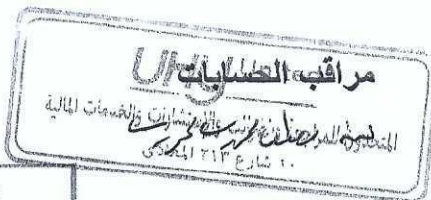 UHY
مراقب الحسابات
المتحدون للمراجعة والاستشارات والخدمات المالية
١٠ شارع ٢١٣ المعادى